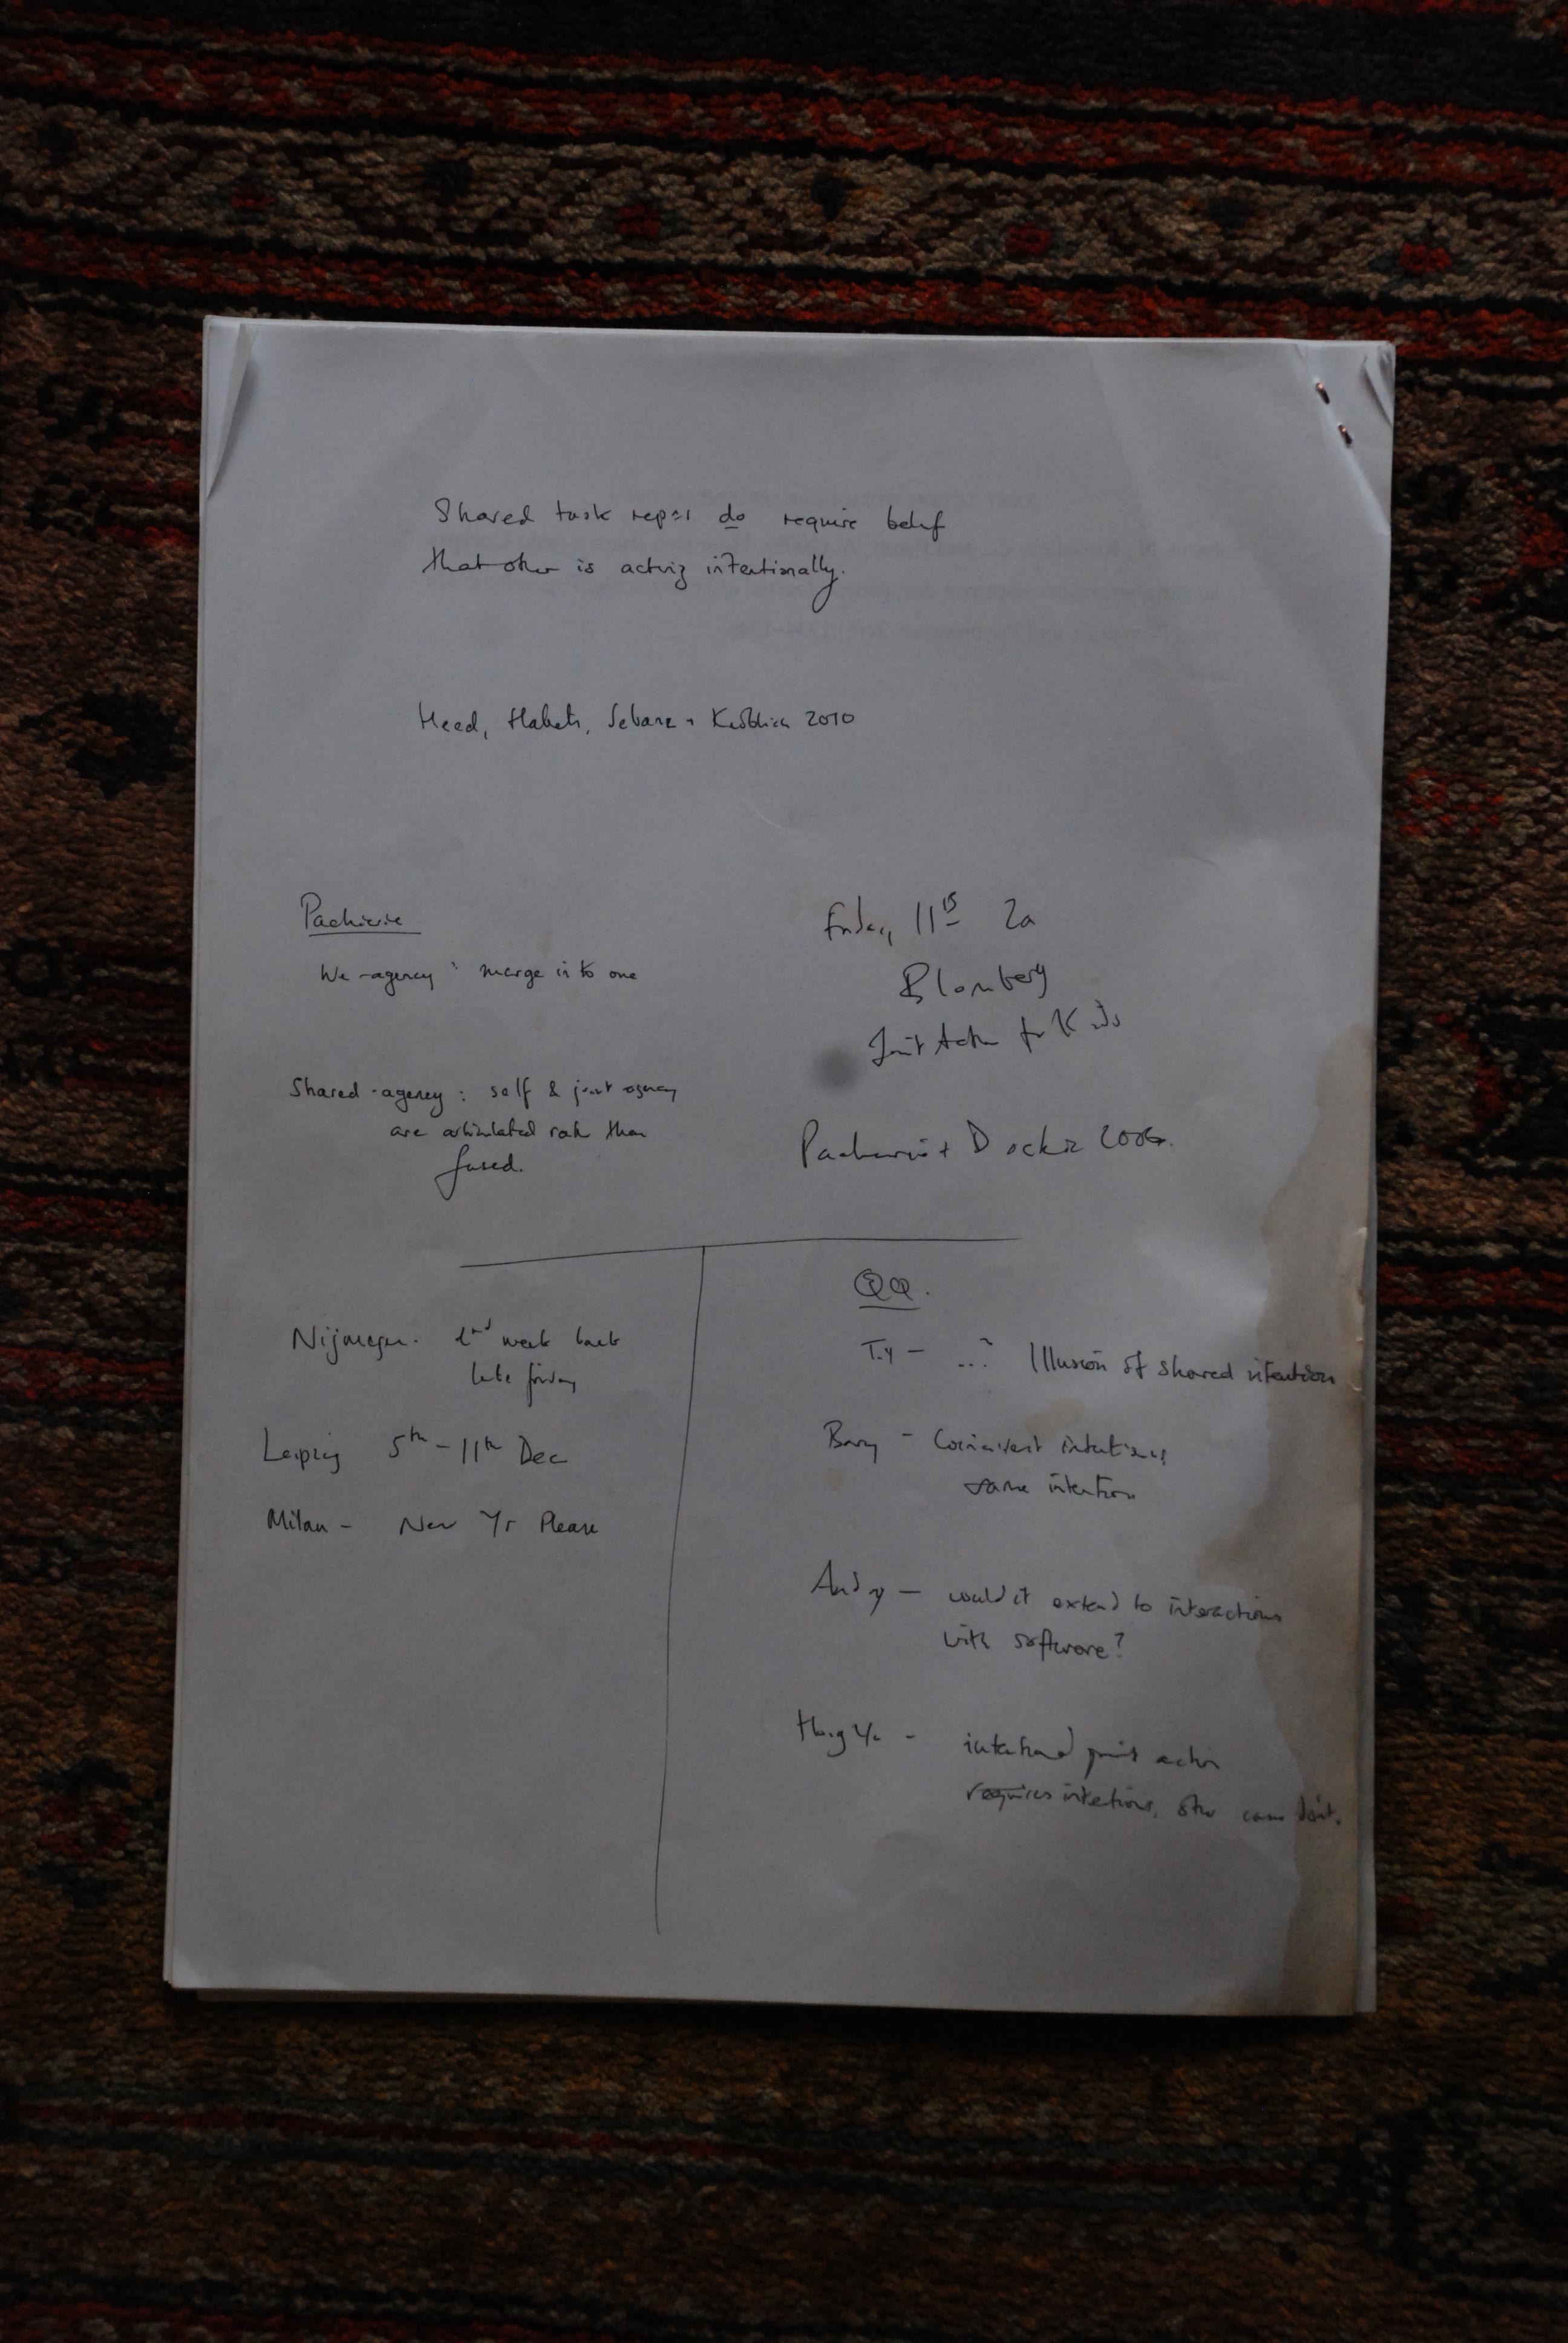 Shared task reps do require belief
that other is acting intentionally.
Heed, Habets, Sebanz + Knoblich 2010
Pacherie
We-agency: merge in to one
Shared-agency: self & joint agency
are articulated rather than
fused.
Friday 11th
Blomberg
Joint Action for Kids
Pacherie +
Nijmegen. 2nd week back
late friday
Leipzig 5th - 11th Dec
Milan - New Yr Please
QQ.
... Illusion of shared intention
intentions,
same intention
Andy - would it extend to interactions
with software?
intentional joint action
requires intentions, other can don't.